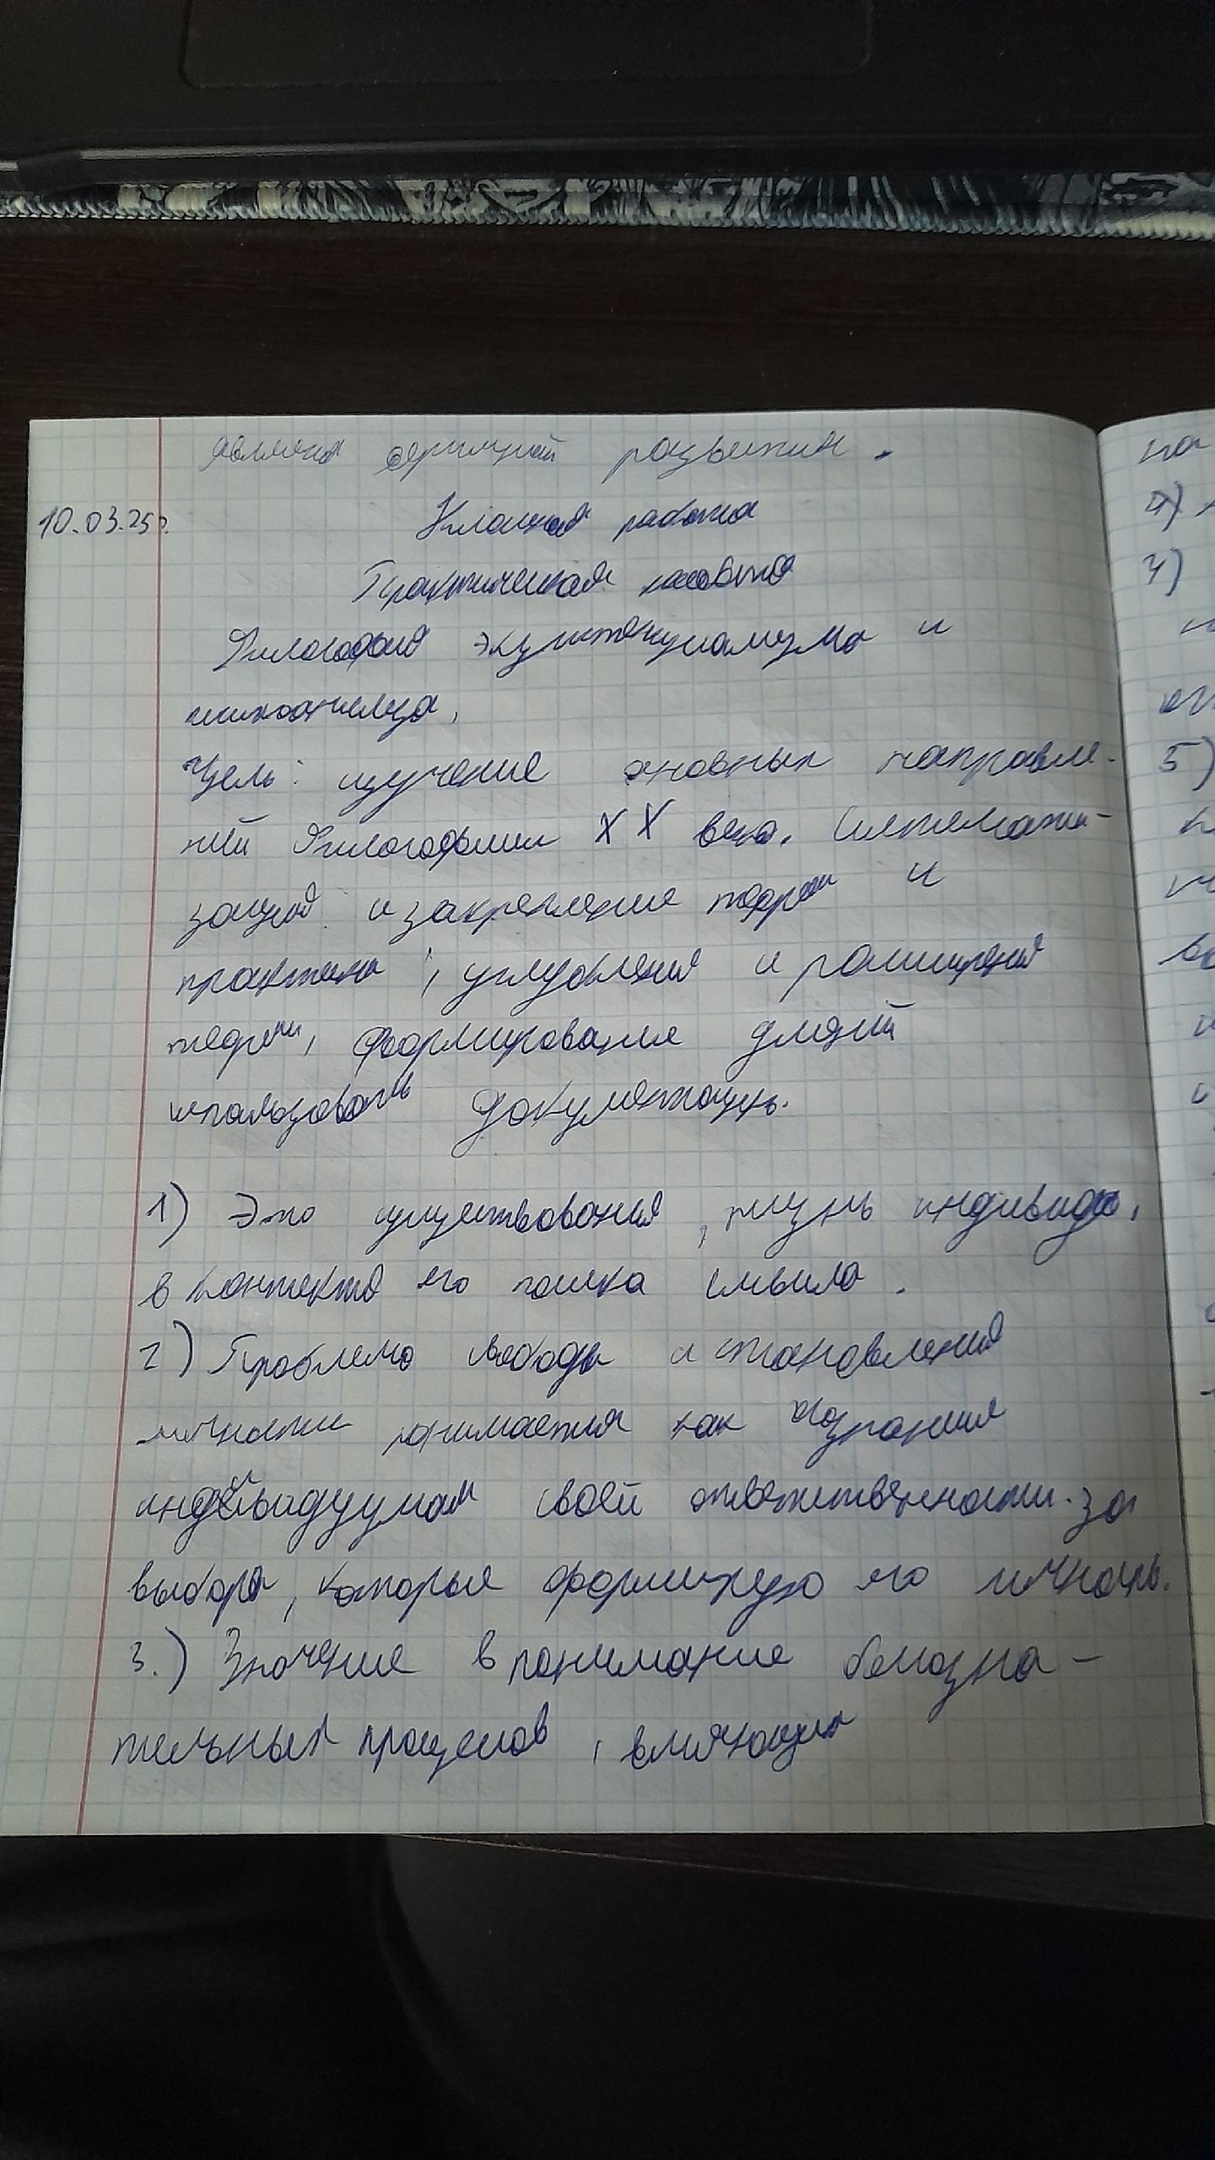 10.03.25г.
Классная работа
Практическая работа
Философия экзистенциализма и
психоанализа.
Цель: изучение основных направле-
ний Философии XX века. Системати-
зация и закрепление теории и
практики, углубления и расширения
теории, формирования умений
использовать документацию.
1) Это существования, жизнь индивида,
в контексте его поиска смысла.
2) Проблема свободы и становления
личности понимается как осознания
индивидуумам своей ответственности за
выборы, которые формирую его личность.
3.) Значение в понимание безсозна-
тельных процессов, влияющих
на
4)
5)